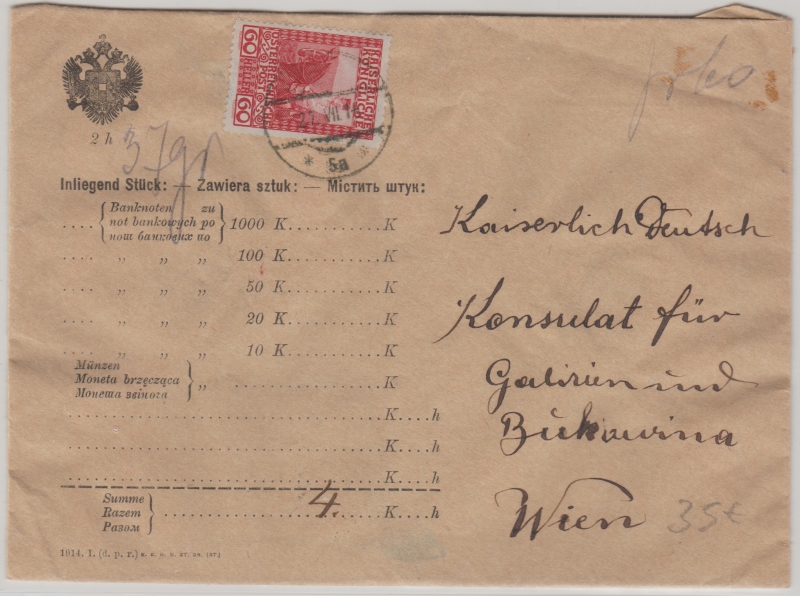 60 60
KAISERLICHE
KÖNIGLICHE
ÖSTERREICHISCHE
POST
HELLER
27. VII 14
* 5a *
2 h
37gr
Inliegend Stück: — Zawiera sztuk: — Містить штук:
.... Banknoten zu
not bankowych po 1000 K..............K
нот банкових по
.... „ „ „ 100 K..............K
.... „ „ „ 50 K..............K
.... „ „ „ 20 K..............K
.... „ „ „ 10 K..............K
Münzen
Moneta brzęcząca „ ..............K
Монета звінога
..............K....h
..............K....h
..............K....h
Summe
Razem ..............4.......K....h
Разом
1914. I. (d. p. r.)
Kaiserlich Deutsch
Konsulat für
Galizien und
Bukowina
Wien
35€